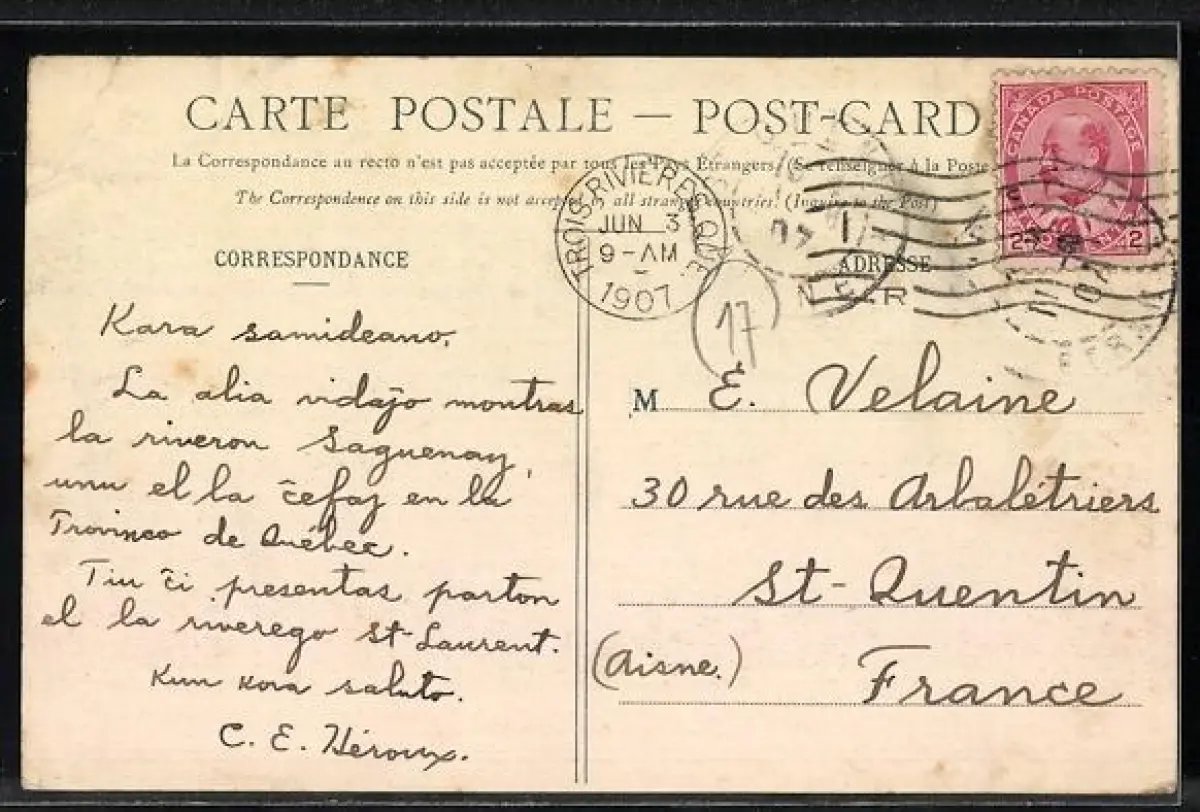 CARTE POSTALE — POST-CARD
La Correspondance au recto n'est pas acceptée par tous les Pays Étrangers. (Se renseigner à la Poste
The Correspondence on this side is not accepted by all strange countries. (Inquire to the Post)
CORRESPONDANCE
Kara samideano,
La alia vidaĵo montras
la riveron Saguenay,
unu el la ĉefaj en la
Provinco de Québec.
Tiu ĉi presentas parton
el la riverego St-Laurent.
Kun kora saluto.
C. E. Héroux.
TROIS-RIVIERES QUE.
JUN 3
9-AM
1907
17
CANADA POSTAGE
2 2
ADRESSE
M E. Velaine
30 rue des Arbalétriers
St-Quentin
(Aisne.) France